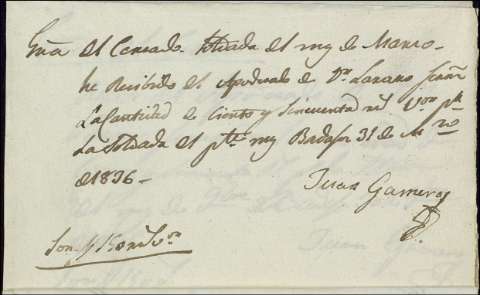 del Cercado. Soldada del my de Marzo.
he Recibido del Apoderado de Dn. Lazaro
La Cantidad de Ciento y Sincuenta rs Von pr
La Soldada del pte. my Badajoz 31 de Mzo
de 1836 –
Juan Gameros
Son 150 rs Von